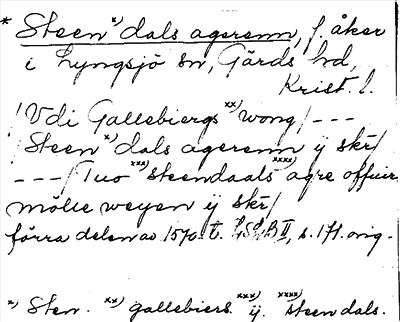 * Steen x) dals agerenn, f. åker
i Lyngsjö sn, Gärds hd,
Krist. l.
/Vdi Gallebiergs xx) wong/---
/Steen x) dals agerenn ÿ skr/
---/Tuo xxx) steendaals xxxx) agre offuer
mölle weyen ÿ skr/
förra delen av 1570-t. LSLB II, s. 171. orig.
x) Sten. xx) gallebiers. xxx) ij. xxxx) steendals.